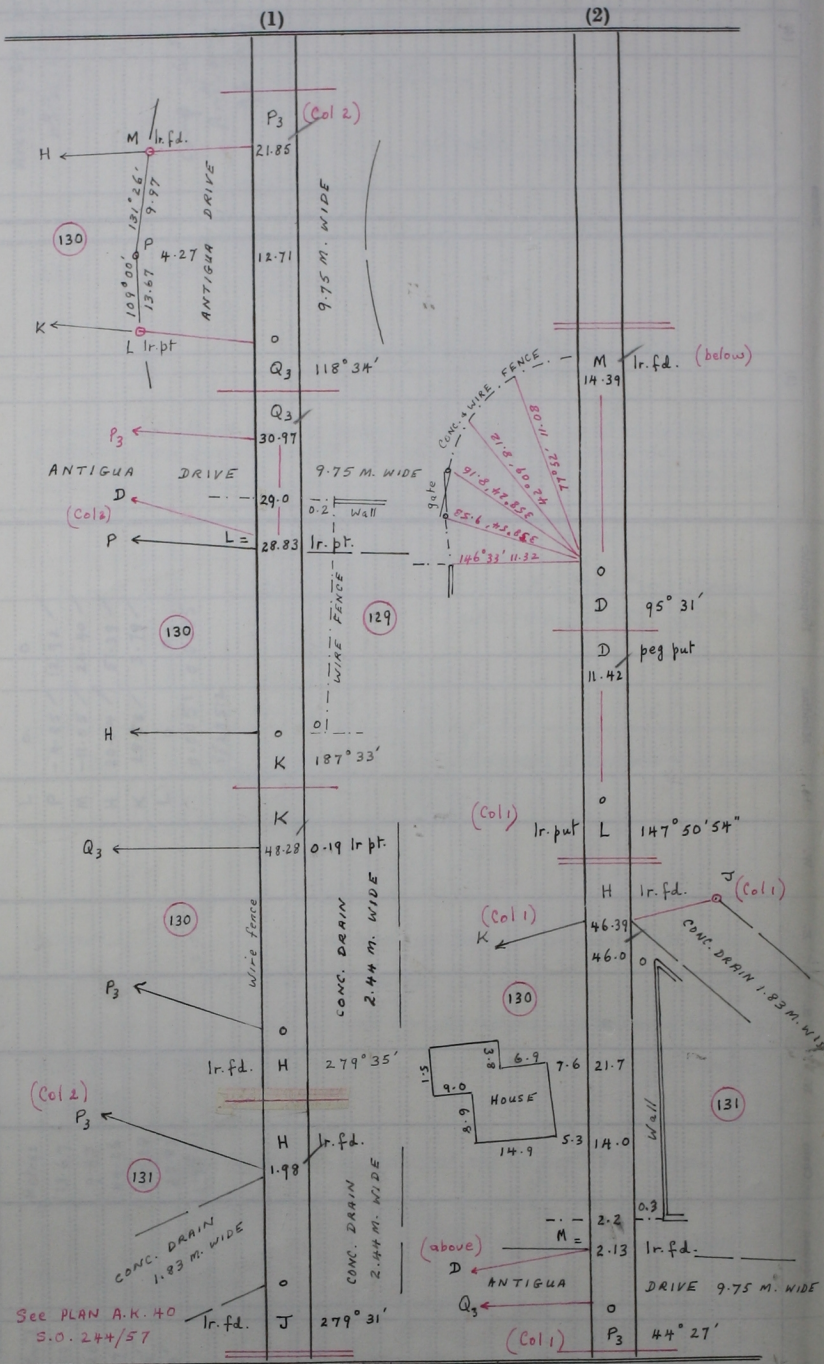 (1)
P3 (Col 2)
M Ir.fd.
H
21.85
131°26'
9.97
130
P
4.27
ANTIGUA DRIVE
12.71
9.75 M. WIDE
109°00'
13.67
K
L Ir.pt
o
Q3 118°34'
Q3
P3
30.97
ANTIGUA DRIVE 9.75 M. WIDE
D
29.0
0.2 Wall
(Col 2)
P
L = 28.83 Ir.pt.
WIRE FENCE
130
129
H
o
01
K 187°33'
K
Q3
48.28 0.19 Ir pt.
130
Wire fence
CONC. DRAIN
2.44 M. WIDE
P3
o
Ir.fd. H 279°35'
(Col 2)
P3
H Ir.fd.
131
1.98
CONC. DRAIN
1.83 M. WIDE
CONC. DRAIN
2.44 M. WIDE
o
See PLAN A.K. 40
S.O. 244/57
Ir.fd. J 279°31'
(2)
M Ir.fd. (below)
14.39
CONC. & WIRE FENCE
gate
77°52', 11.08
42°09', 8.12
358°24', 8.16
146°33' 11.32
o
D 95°31'
D peg put
11.42
o
(Col 1)
Ir.put L 147°50'54"
H Ir.fd.
J (Col 1)
(Col 1)
K
46.39
46.0 o
CONC. DRAIN 1.83 M.
130
3.8
6.9
7.6 21.7
1.5
9.0
HOUSE
Wall
131
8.9
14.9
5.3 14.0
0.3
2.2
M =
(above)
2.13 Ir.fd.
D
ANTIGUA DRIVE 9.75 M. WIDE
Q3
o
(Col 1) P3 44°27'